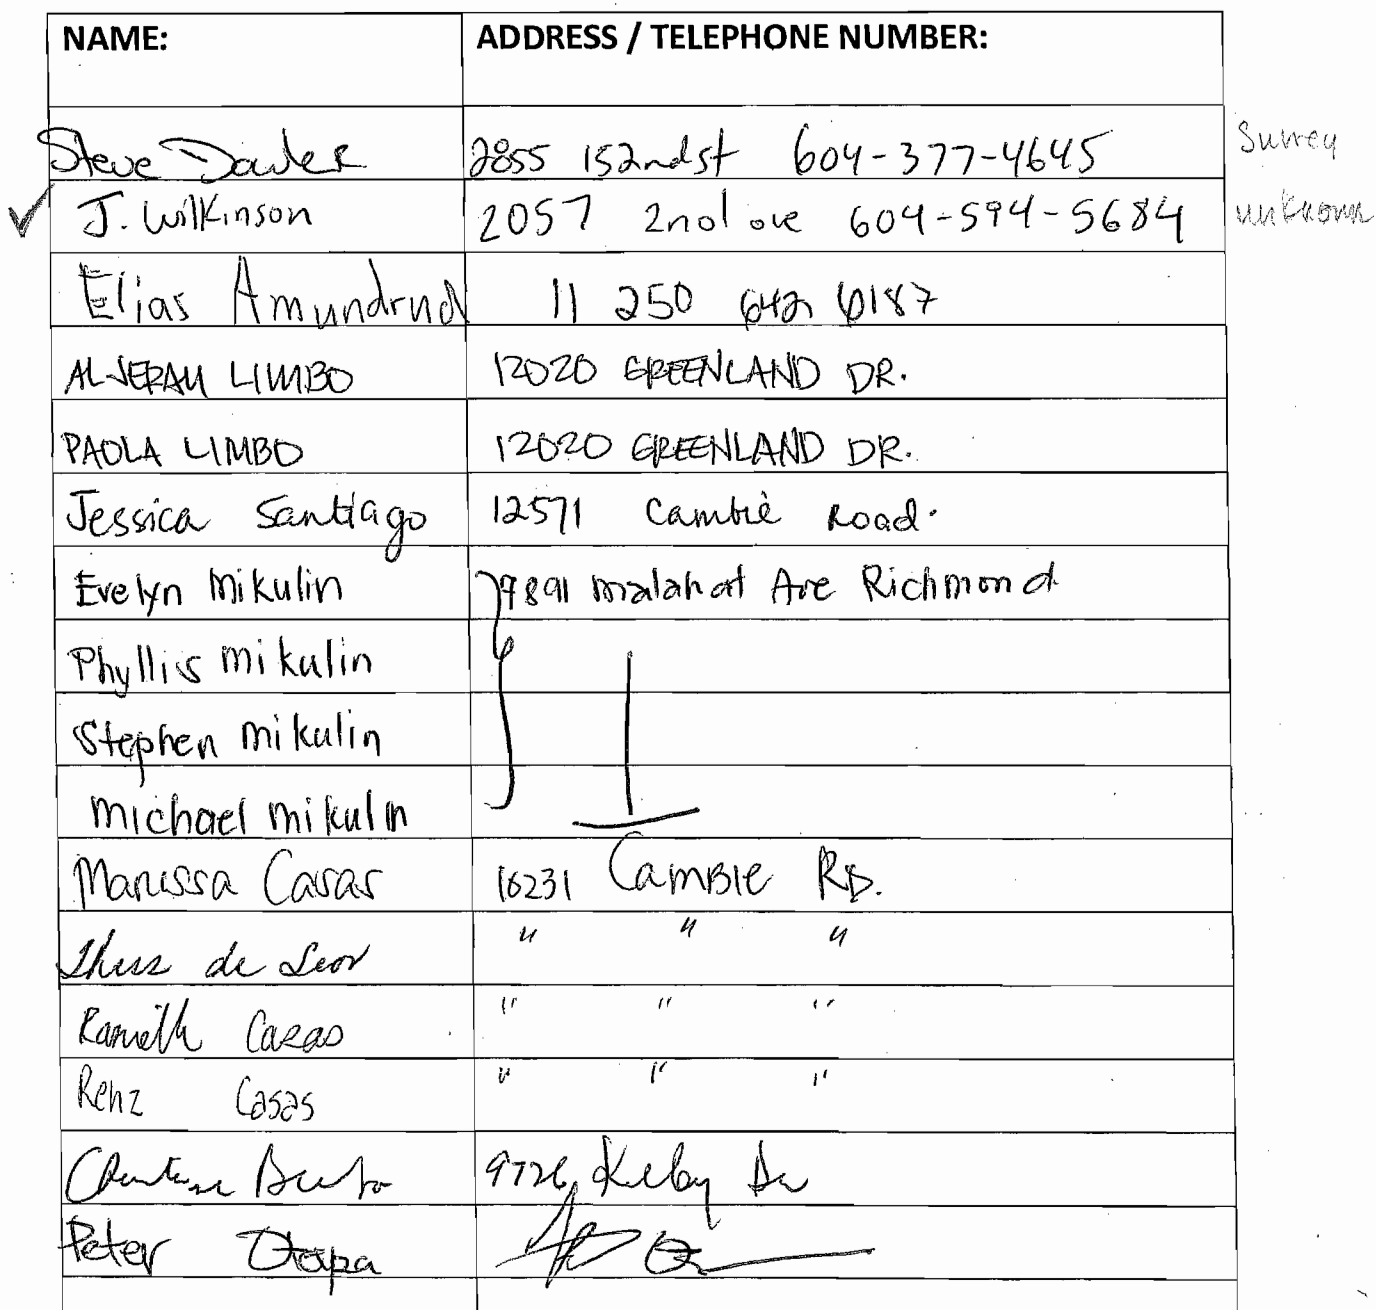 NAME: ADDRESS / TELEPHONE NUMBER:
Steve 2855 152nd st 604-377-4645 Surrey
J. Wilkinson 2057 2nd ave 604-594-5684 unknown
Elias Amundrud 11 250 642 6187
ALJERAM LIMBO 12020 GREENLAND DR.
PAOLA LIMBO 12020 GREENLAND DR.
Jessica Santiago 12571 Cambie Road.
Evelyn Mikulin 9891 Malahat Ave Richmond
Phyllis Mikulin
Stephen Mikulin
Michael Mikulin
Marissa Casas 16231 Cambie RD.
de Leon " " "
Casas " " "
Renz Casas " " "
9726
Peter